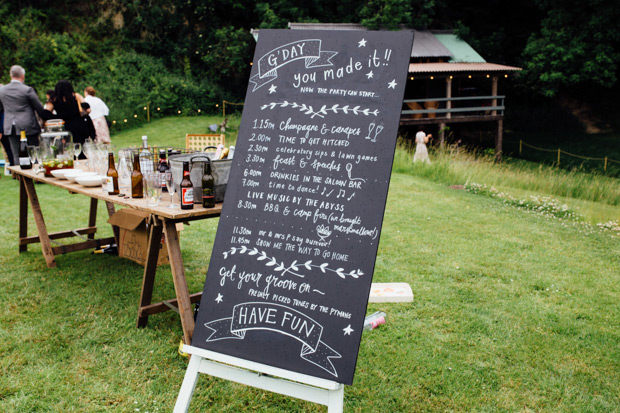 G'DAY
you made it!!
NOW THE PARTY CAN START...
1.15pm Champagne & canapes
2.00pm TIME TO GET HITCHED
2.30pm celebratory sips & lawn games
3.30pm feast & speeches
6.00pm DRINKIES IN THE SALOON BAR
7.00pm time to dance!
LIVE MUSIC BY THE ABYSS
8.30pm BBQ & camp fire (we bought marshmallows!)
11.30pm mr & mrs P's guy
11.45pm SHOW ME THE WAY TO GO HOME
get your groove on ~
PRE PARTY PICKED TUNES BY THE PYMANS
HAVE FUN